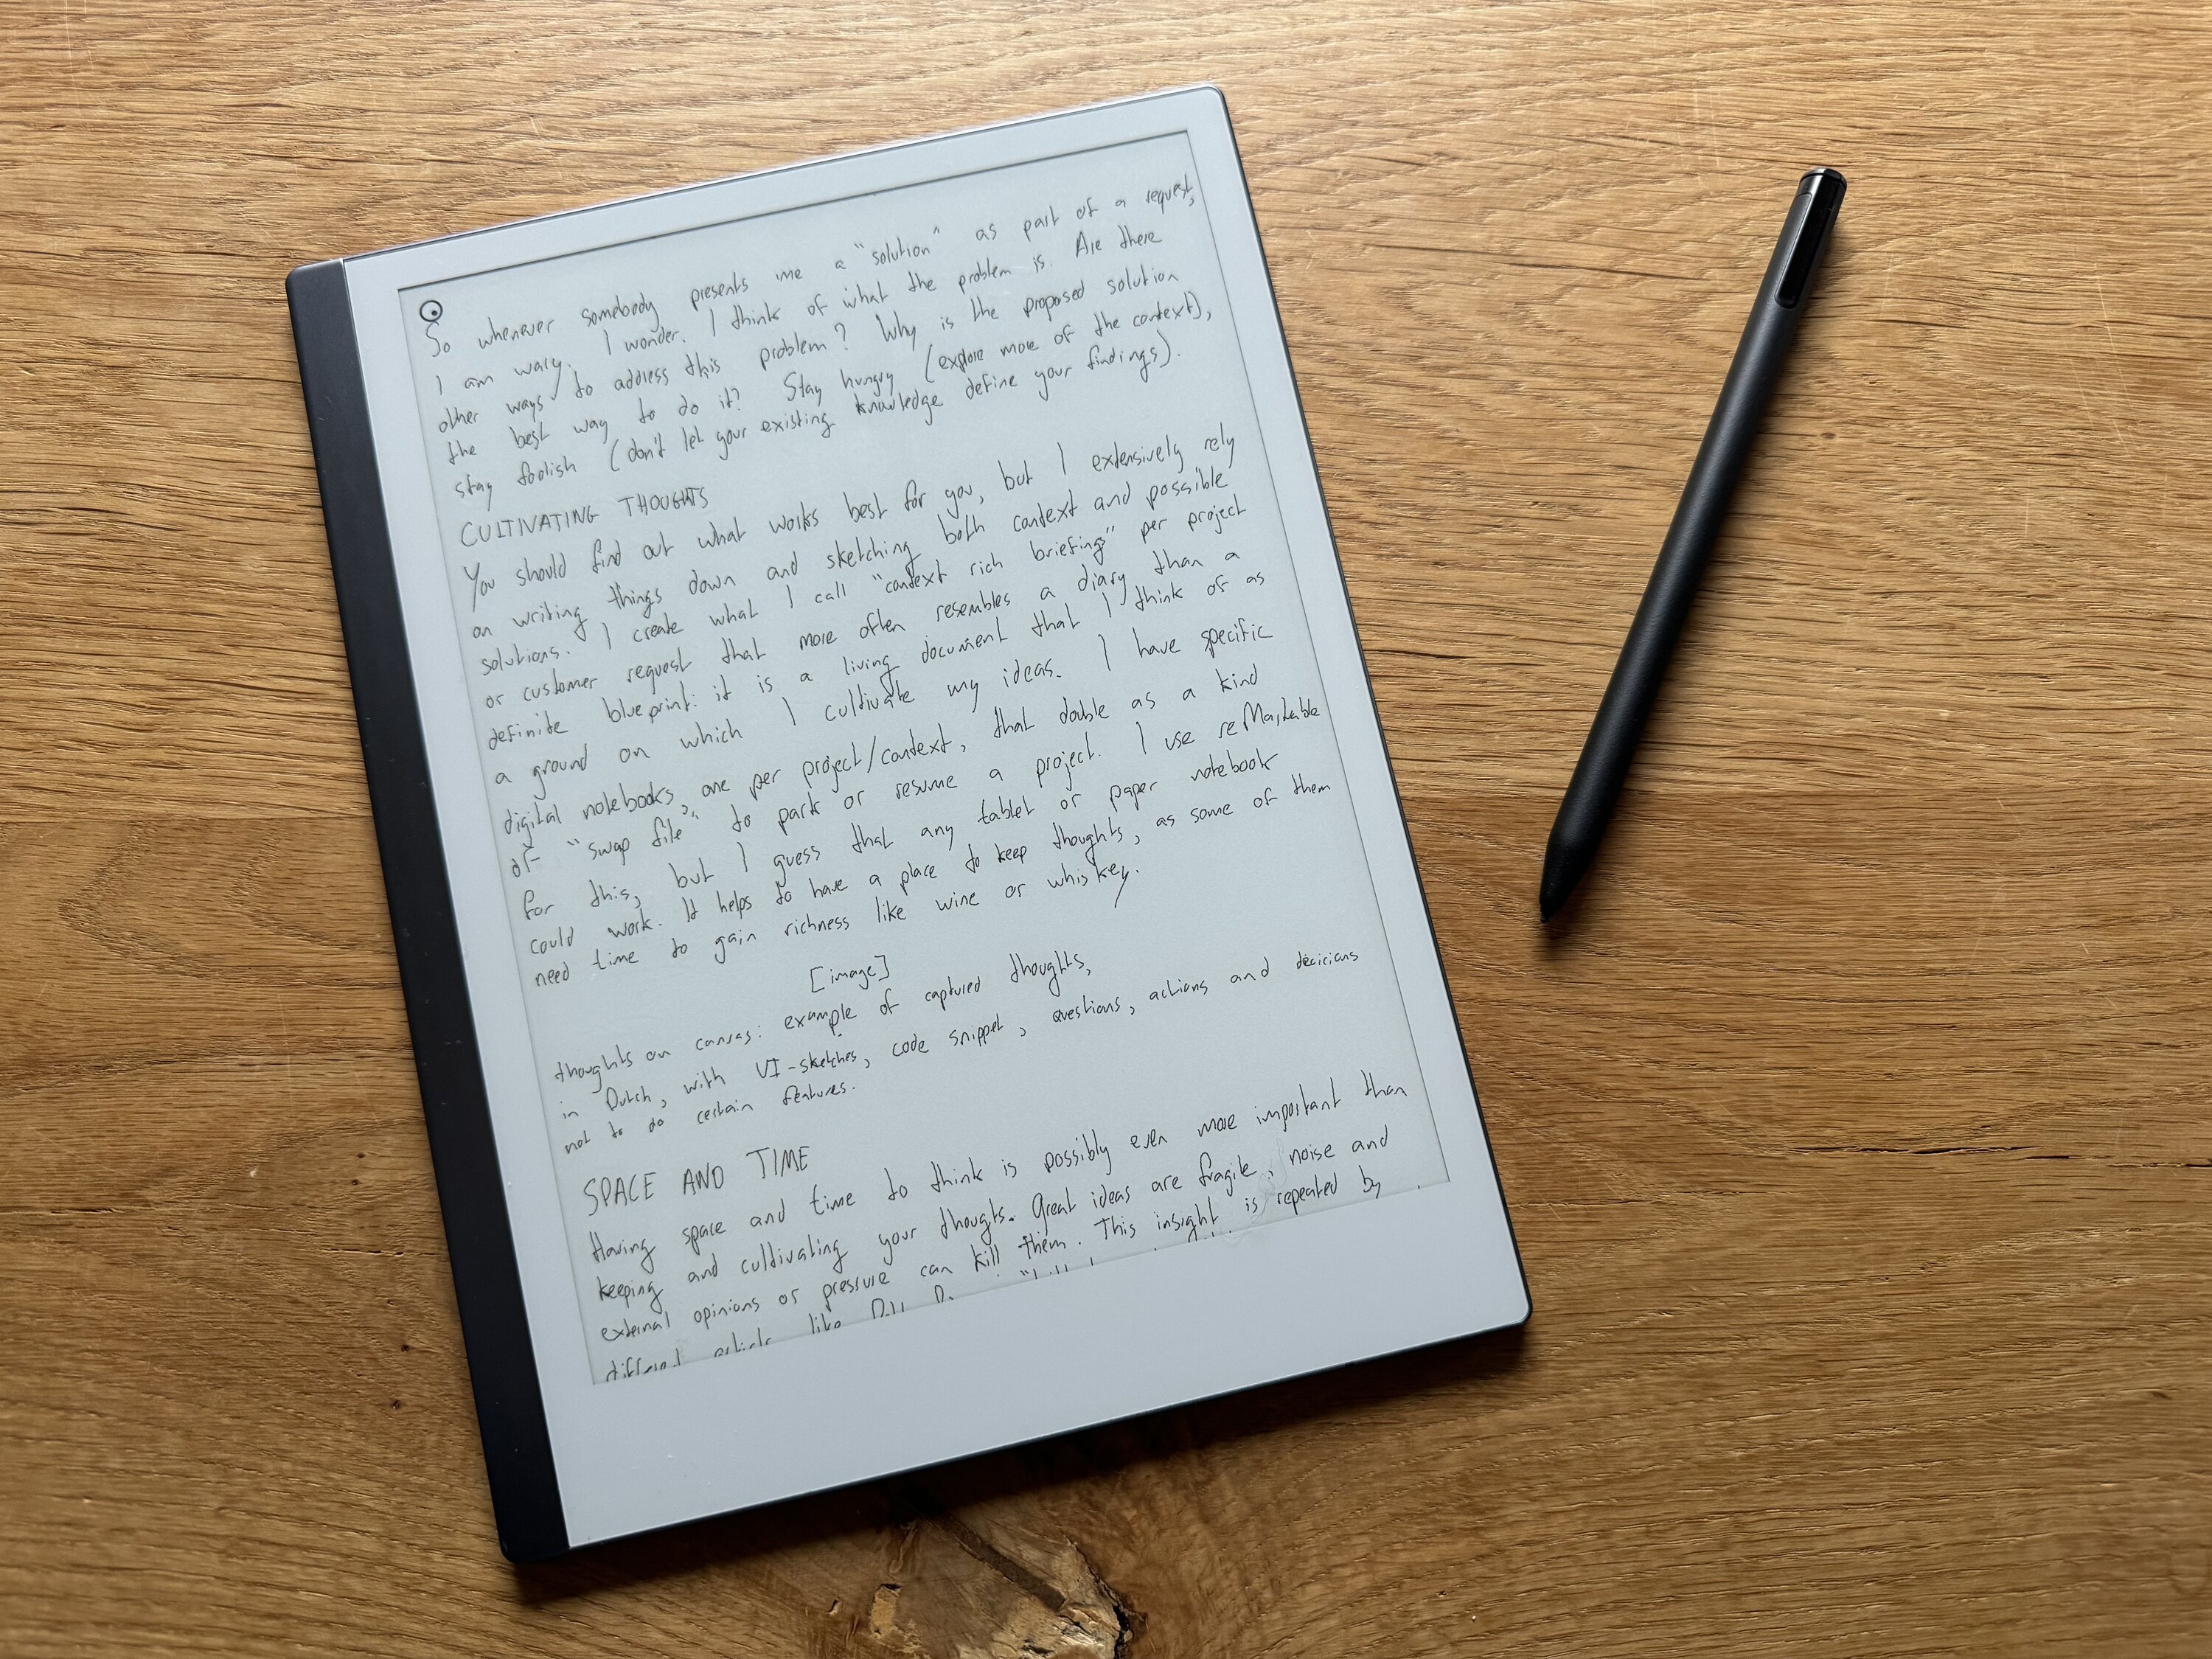 So whenever somebody presents me a "solution" as part of a request,
I am wary. I wonder. I think of what the problem is. Are there
other ways to address this problem? Why is the proposed solution
the best way to do it? Stay hungry (explore more of the context),
stay foolish (don't let your existing knowledge define your findings).
CULTIVATING THOUGHTS
You should find out what works best for you, but I extensively rely
on writing things down and sketching both context and possible
solutions. I create what I call "context rich briefings" per project
or customer request that more often resembles a diary than a
definite blueprint: it is a living document that I think of as
a ground on which I cultivate my ideas. I have specific
digital notebooks, one per project/context, that double as a kind
of "swap file" to park or resume a project. I use reMarkable
for this, but I guess that any tablet or paper notebook
could work. It helps to have a place to keep thoughts, as some of them
need time to gain richness like wine or whiskey.
[image]
thoughts on canvas: example of captured thoughts,
in Dutch, with UI-sketches, code snippet, questions, actions and decicions
not to do certain features.
SPACE AND TIME
Having space and time to think is possibly even more important than
keeping and cultivating your thougts. Great ideas are fragile, noise and
external opinions or pressure can kill them. This insight is repeated by
different like